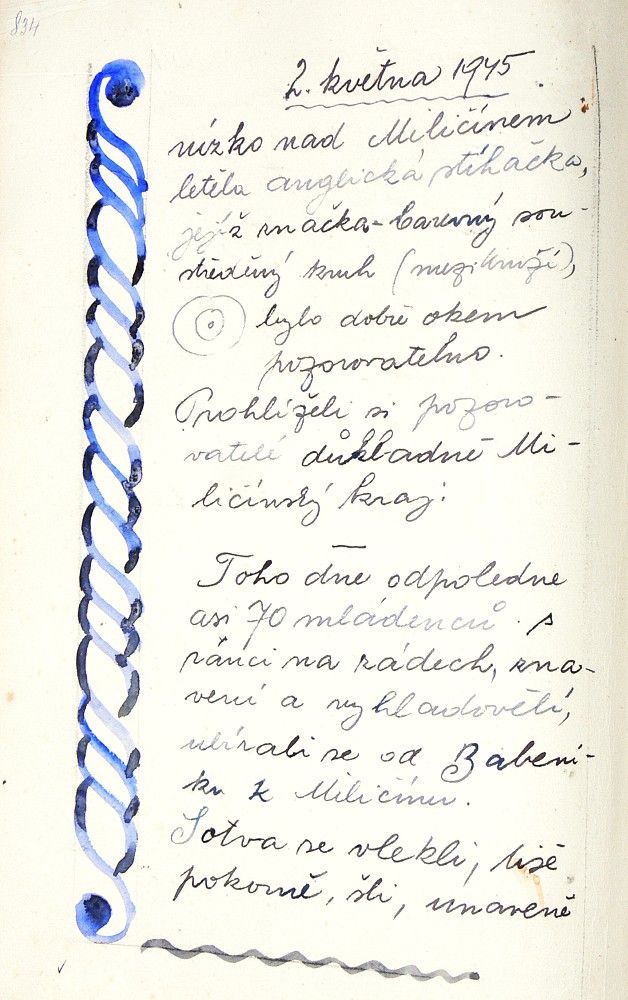 834
2. května 1945.
nízko nad Miličínem
letěla anglická stíhačka,
jejíž značka - barevný sou-
středěný kruh (mezikruží),
bylo dobře okem
pozorovatelno.
Prohlíželi si pozoro-
vatelé důkladně Mi-
ličínský kraj.
Toho dne odpoledne
asi 70 mládenců s
ranci na zádech, zna-
vení a vyhladovělí,
ubírali se od Babení-
ku k Miličínu.
Sotva se vlekli, tiše
pokorně, šli, unaveně